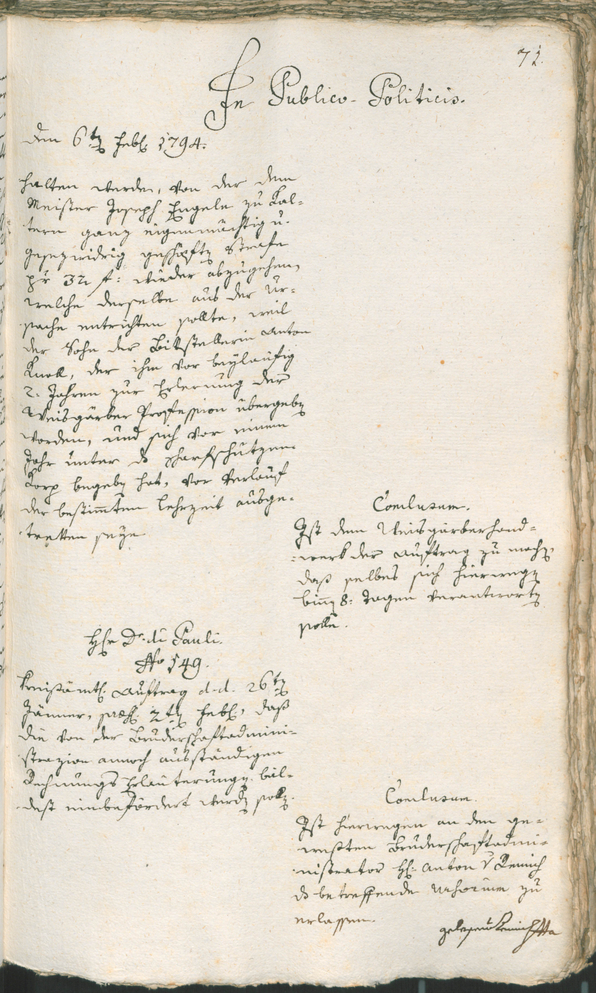 72.
In Publico-Politicis.
Den 6tn Febr. 1794.
halten werden, von der dem
Meister Joseph Engele zu Kal-
tern ganz eigenmächtig u.
gesezwidrig geschöpften Strafe
pr 32 f: wieder abzugehen,
welche derselbe aus der Ur-
sache entrichten sollte, weil
der Sohn der Bittstellerin Anton
der ihm vor beyläufig
2. Jahren zur Erlernung der
Weisgärber Profession übergeben
worden, und sich vor einem
Jahr unter das Scharfschützen-
Korp begeben hat, vor Verlauf
der bestimmten Lehrzeit ausge-
tretten seye.
Conclusum.
Ist dem Weisgärberhand-
werk der Auftrag zu machen,
daß selbes sich hierwegen
binnen 8: Tagen verantworten
solle.
Hr Dr. di Pauli.
No 149.
Kreisämtl. Auftrag d.d. 26tn
Jänner, præs. 2tn Febr., daß
die von der Bruderschaftadmini-
strazion annoch ausständigen
Rechnungs Erläuterungen bäl-
dest einbefördert werden sollen.
Conclusum.
Ist hierwegen an den ge-
westen Bruderschaftadmi-
nistrator Hr. Anton v
das betreffende zu
erlassen.